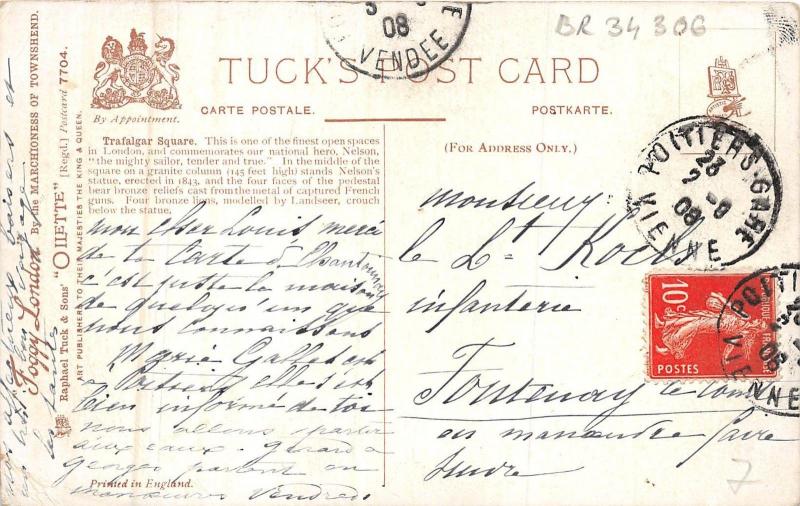 BR 34 306
08
VENDEE
TUCK'S POST CARD
By Appointment.
CARTE POSTALE.
POSTKARTE.
(FOR ADDRESS ONLY.)
Trafalgar Square. This is one of the finest open spaces
in London, and commemorates our national hero, Nelson,
"the mighty sailor, tender and true." In the middle of the
square on a granite column (145 feet high) stands Nelson's
statue, erected in 1843, and the four faces of the pedestal
bear bronze reliefs cast from the metal of captured French
guns. Four bronze lions, modelled by Landseer, crouch
below the statue.
mon cher Louis merci
de ta carte de Chantonnay
c est juste la maison
de quelqu'un que
nous connaissons
Marie Gallet est
a Poitiers elle s est
bien informé de toi
nous allons partir
aux eaux. Gérard a
Georges partent en
manoeuvres Vendredi
Printed in England.
Monsieur
le Lt
infanterie
Fontenay le Comte
en manoeuvre faire
suivre
POITIERS-GARE
23
08
VIENNE
10c
POSTES
POITI
08
VIENNE
7
Foggy London By the MARCHIONESS OF TOWNSHEND.
Raphael Tuck & Sons' "OILETTE" [Regd.] Postcard 7704.
ART PUBLISHERS TO THEIR MAJESTIES THE KING & QUEEN.
baisers et